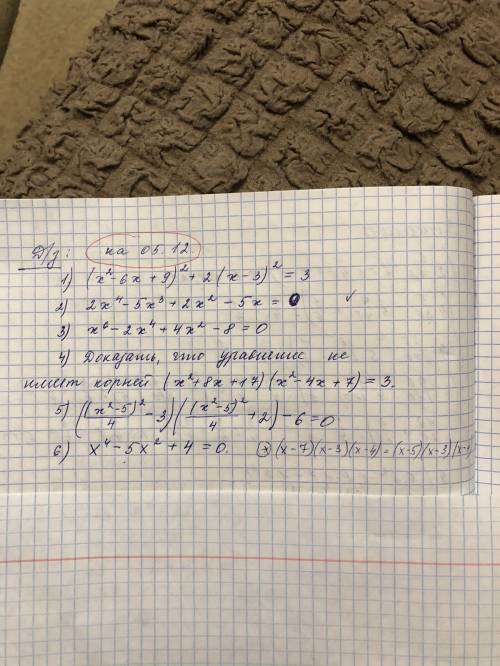 Д/з: на 05.12.
1) (x²-6x+9)²+2(x-3)²=3
2) 2x⁴-5x³+2x²-5x=0 ✓
3) x⁶-2x⁴+4x²-8=0
4) Доказать, что уравнение не
имеет корней (x²+8x+17)(x²-4x+7)=3.
5) ((x²-5)²/4-3)((x²-5)²/4+2)-6=0
6) x⁴-5x²+4=0. (x-7)(x-3)(x-4)=(x-5)(x-3)(x-